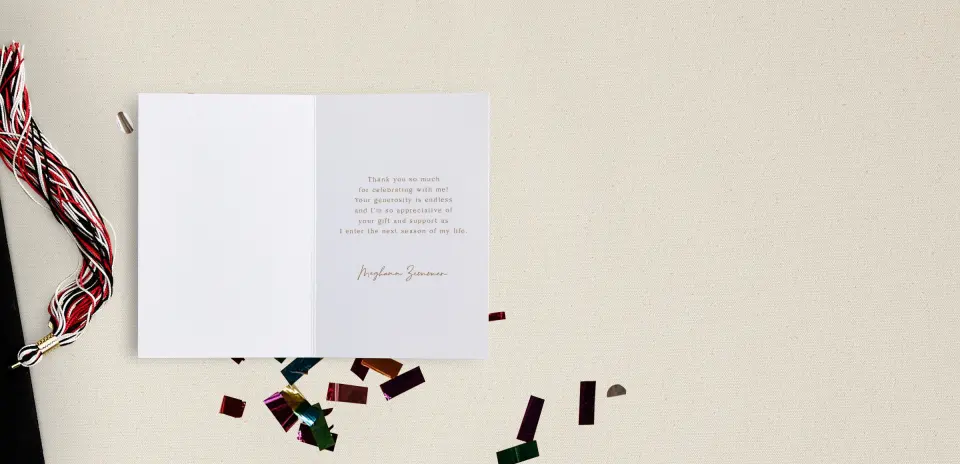 Thank you so much
for celebrating with me!
Your generosity is endless
and I'm so appreciative of
your gift and support as
I enter the next season of my life.
Meghann Zimmerman